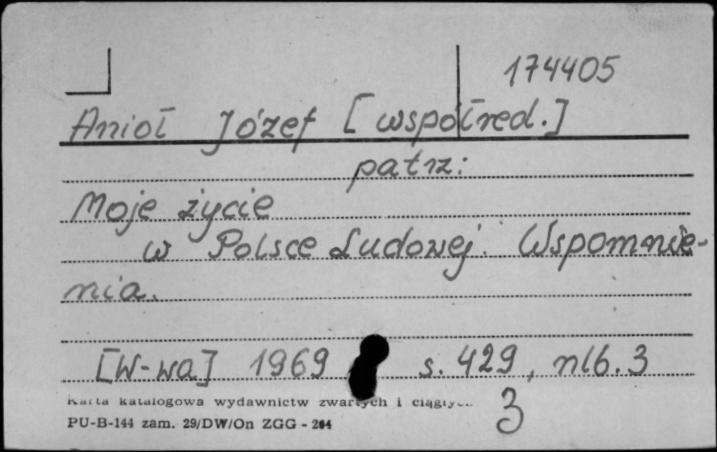 174405
Anioł Józef [współred.]
patrz:
Moje życie
w Polsce Ludowej. Wspomnie-
nia.
[W-wa] 1969 s. 429, nlb. 3
Karta katalogowa wydawnictw zwartych i ciągłych
3
PU-B-144 zam. 29/DW/On ZGG - 204